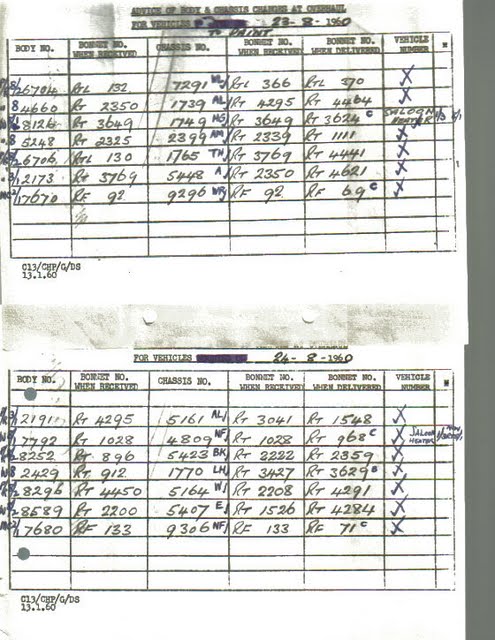 ADVICE OF BODY & CHASSIS CHANGES AT OVERHAUL
FOR VEHICLES 23-8-1960
TO PAINT
BODY NO. BONNET NO. WHEN RECEIVED CHASSIS NO. BONNET NO. WHEN RECEIVED BONNET NO. WHEN DELIVERED VEHICLE NUMBER
6704 RTL 132 7291 WL RTL 366 RTL 370 X
4660 RT 2350 1739 AL RT 4295 RT 4464 X
8126 RT 3649 1749 NS RT 3649 RT 3624 C SALOON HEATER
5248 RT 2325 2399 AM RT 2339 RT 1111 X
6706 RTL 130 1765 TH RT 3769 RT 4441 X
2173 RT 3769 5448 A RT 2350 RT 4621 X
7670 RF 92 9296 WR RF 92 RF 69 C X
C13/CHP/G/DS
13.1.60
FOR VEHICLES 24-8-1960
BODY NO. BONNET NO. WHEN RECEIVED CHASSIS NO. BONNET NO. WHEN RECEIVED BONNET NO. WHEN DELIVERED VEHICLE NUMBER
2191 RT 4295 5161 AL RT 3041 RT 1548 X
7792 RT 1028 4809 NF RT 1028 RT 968 C X SALOON HEATER
8252 RT 896 5423 BK RT 2222 RT 2359 X
2429 RT 912 1770 LH RT 3427 RT 3629 B X
8296 RT 4450 5164 W RT 2208 RT 4291 X
8589 RT 2200 5407 E RT 1526 RT 4284 X
7680 RF 133 9306 NF RF 133 RF 71 C X
C13/CHP/G/DS
13.1.60